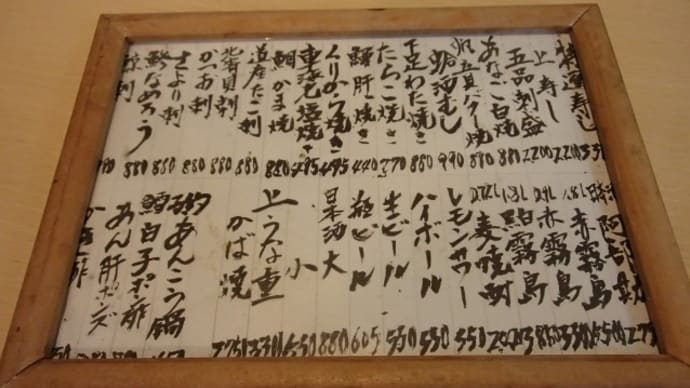 特選寿し
上寿し 2200
五品刺盛 2200
あなご白焼 880
帆立貝バター焼 880
蛤酒むし 990
下足わた焼き 880
たらこ焼き 770
鰻肝焼き 440
くりから焼き 495
車海老塩焼き 495
鯛かま焼 880
道産たこ刺 880
北寄貝刺 880
かつお刺 880
さより刺 880
鯵なめろう 880
赤霧島
1.8L
赤霧島
0.9L
白霧島
1.8L
麦焼酎
0.72L
レモンサワー 550
ハイボール 550
生ビール 550
瓶ビール 605
日本酒 大 880
小 550
上うな重
かば焼
あんこう鍋
鱈白子ポン酢
あん肝ポンズ